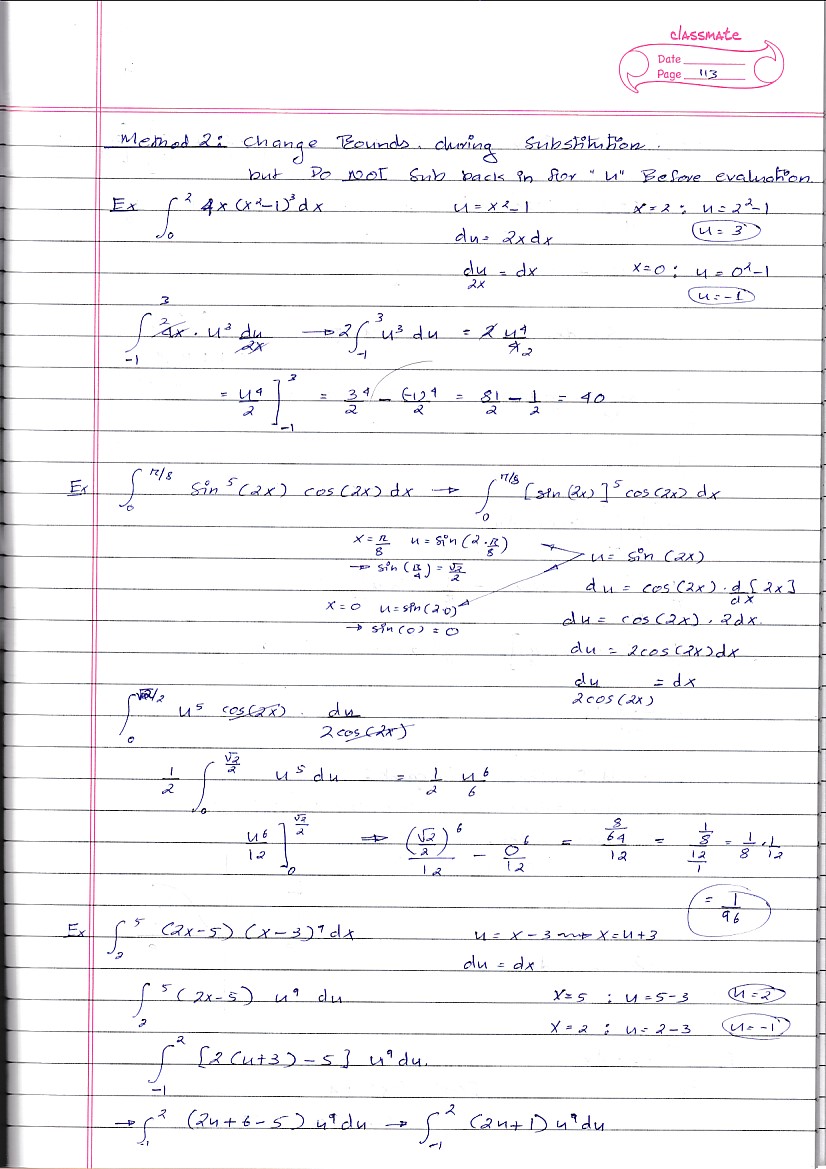 classmate
Date
Page 113
Method 2: Change Bounds. during Substitution.
but Do NOT Sub back in for "u" Before evaluation.
Ex ∫_0^2 4x(x²-1)³dx u = x²-1 x=2 : u = 2²-1
du = 2xdx u = 3
du/2x = dx x=0 : u = 0²-1
u = -1
∫_{-1}^3 4x · u³ du/2x → 2∫_{-1}^3 u³ du = 2 u⁴/4 2
= u⁴/2 ]_{-1}^3 = 3⁴/2 - (-1)⁴/2 = 81/2 - 1/2 = 40
Ex ∫_0^{π/8} sin⁵(2x) cos(2x) dx → ∫_0^{π/8} [sin(2x)]⁵ cos(2x) dx
x = π/8 u = sin(2·π/8) u = sin(2x)
→ sin(π/4) = √2/2 du = cos(2x) · d/dx [2x]
x = 0 u = sin(2·0) du = cos(2x) · 2dx.
→ sin(0) = 0 du = 2cos(2x)dx
du/2cos(2x) = dx
∫_0^{√2/2} u⁵ cos(2x) · du/2cos(2x)
1/2 ∫_0^{√2/2} u⁵ du = 1/2 u⁶/6
u⁶/12 ]_0^{√2/2} ⇒ (√2/2)⁶/12 - 0⁶/12 = (8/64)/12 = (1/8)/(12/1) = 1/8 · 1/12
= 1/96
Ex ∫_2^5 (2x-5) (x-3)⁹dx u = x-3 → x = u+3
du = dx
∫_2^5 (2x-5) u⁹ du x=5 : u = 5-3 u = 2
x = 2 : u = 2-3 u = -1
∫_{-1}^2 [2(u+3)-5] u⁹du.
→ ∫_{-1}^2 (2u+6-5) u⁹du → ∫_{-1}^2 (2u+1) u⁹du